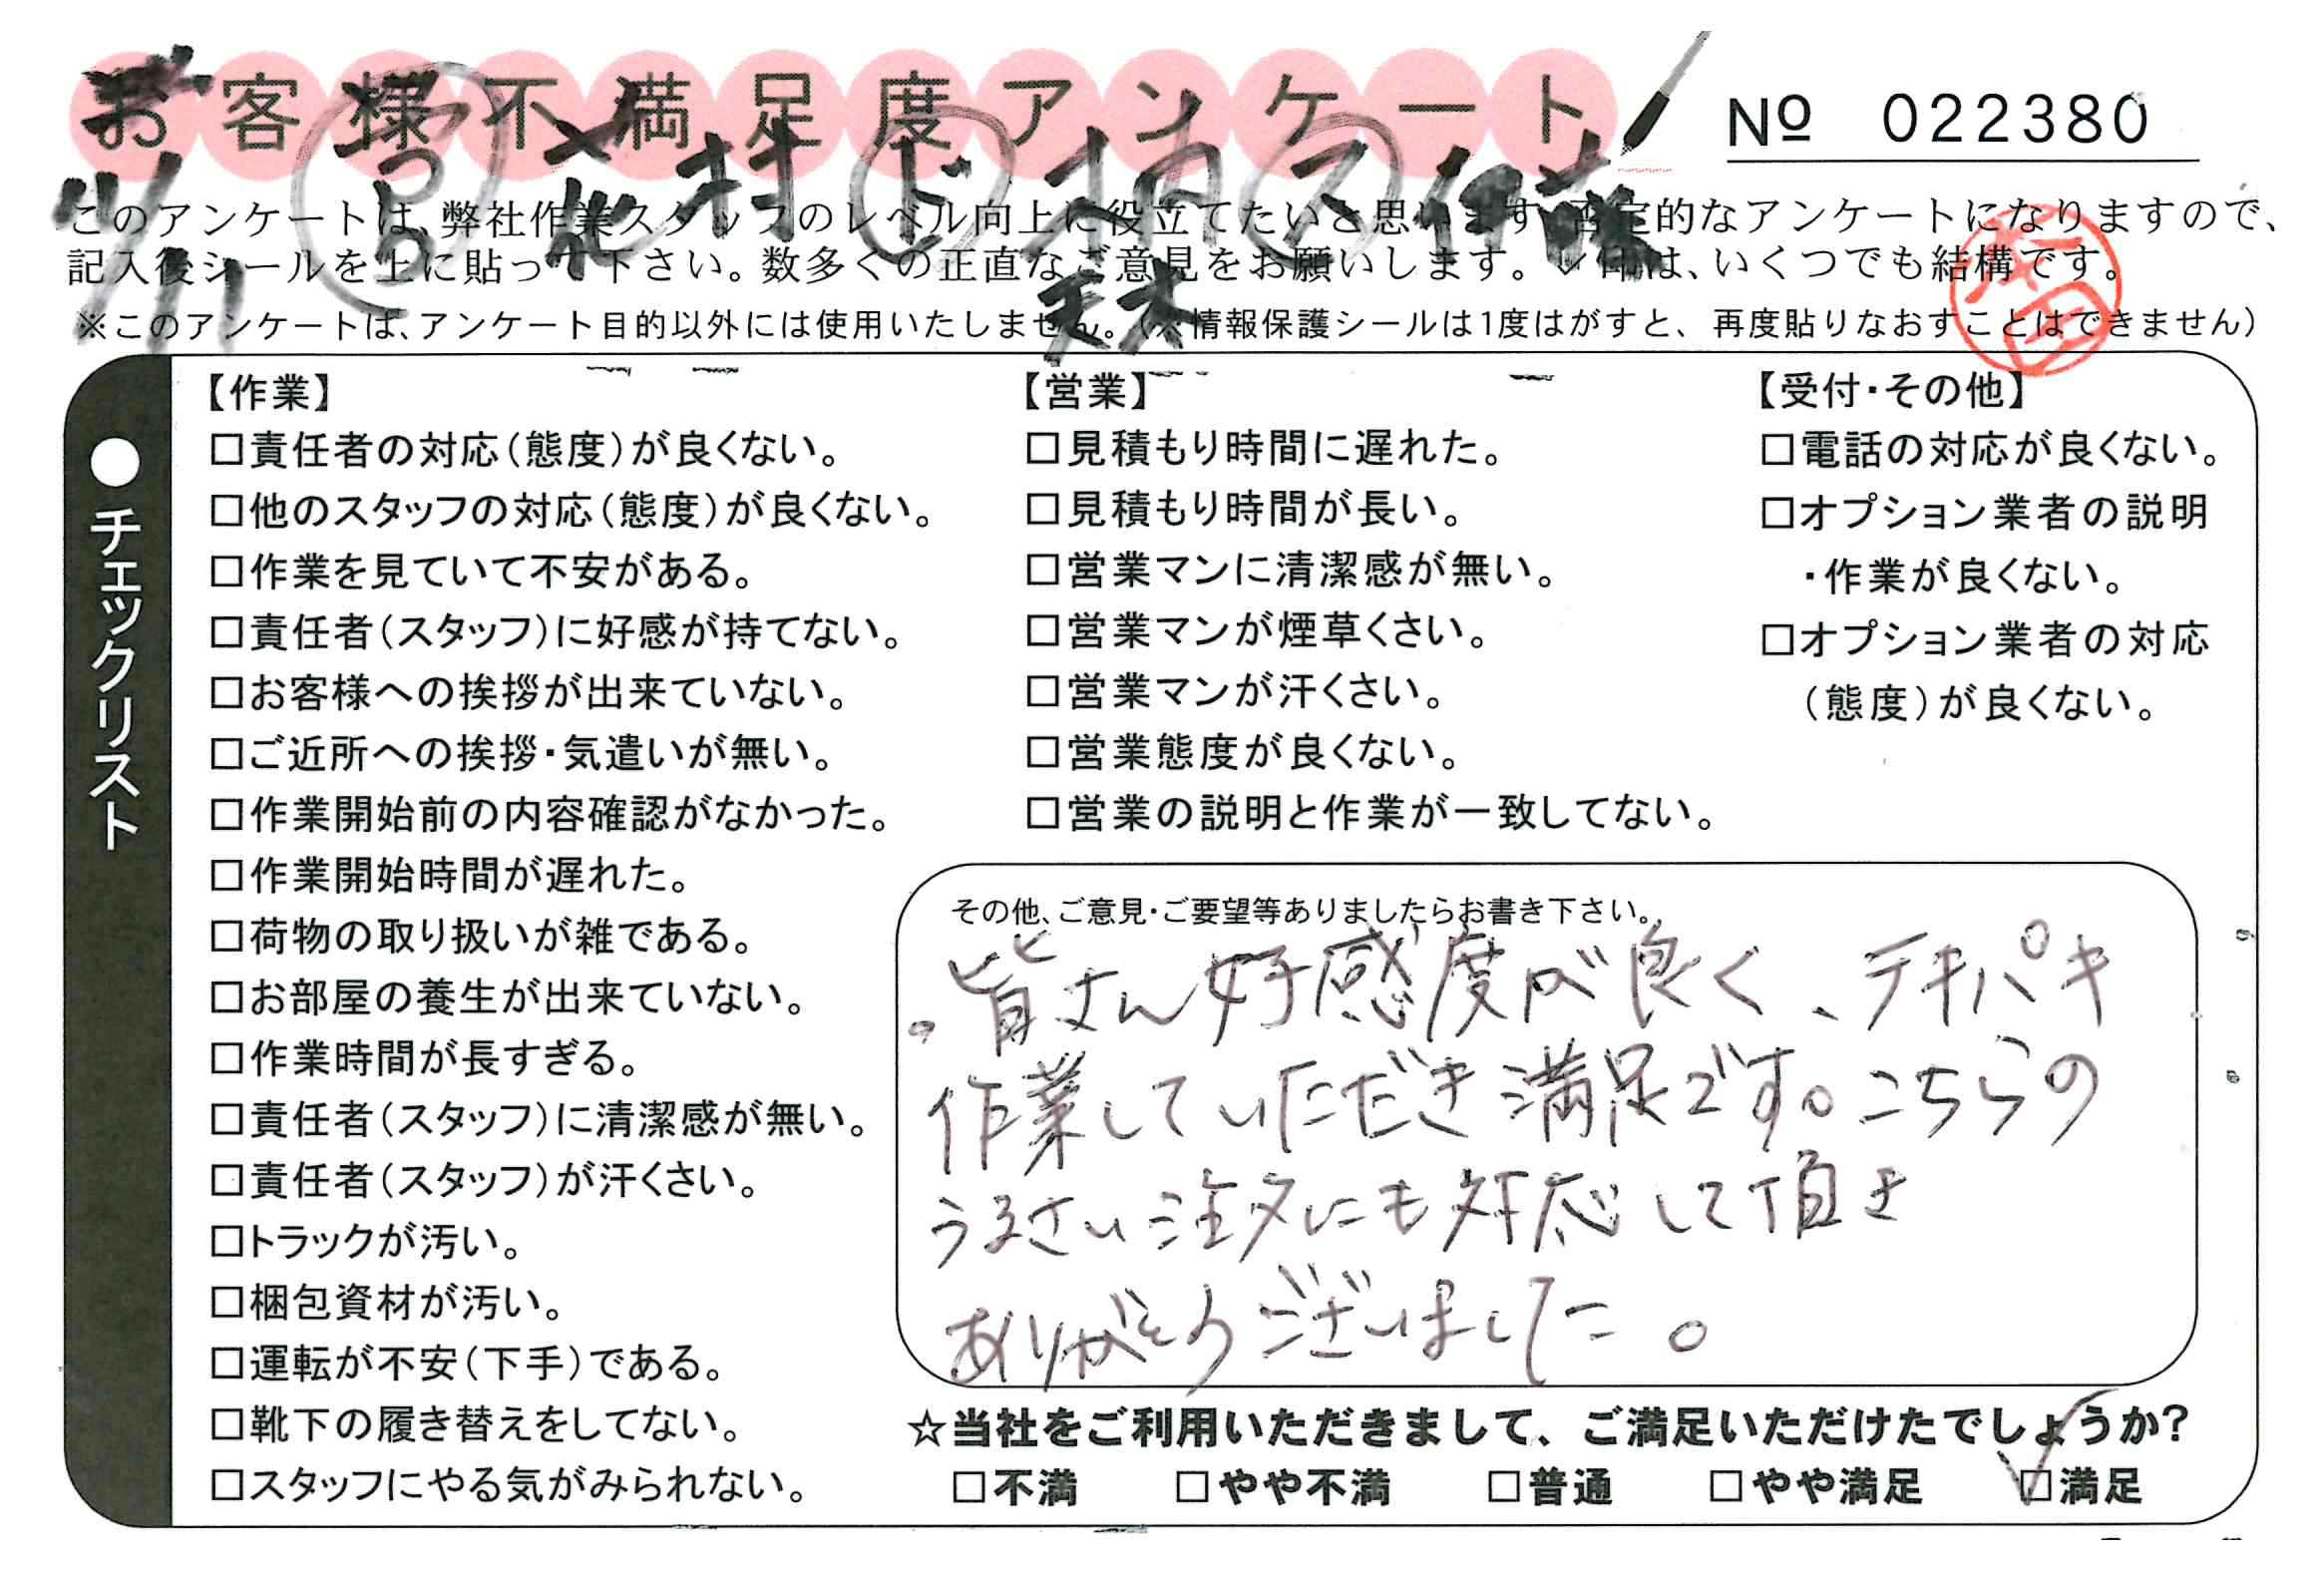 お客様不満足度アンケート
№ 022380
このアンケートは、弊社作業スタッフのレベル向上に役立てたいと思います。否定的なアンケートになりますので、
記入後シールを上に貼って下さい。数多くの正直なご意見をお願いします。✓印は、いくつでも結構です。
※このアンケートは、アンケート目的以外には使用いたしません。(※情報保護シールは1度はがすと、再度貼りなおすことはできません)
●チェックリスト
【作業】
□責任者の対応(態度)が良くない。
□他のスタッフの対応(態度)が良くない。
□作業を見ていて不安がある。
□責任者(スタッフ)に好感が持てない。
□お客様への挨拶が出来ていない。
□ご近所への挨拶・気遣いが無い。
□作業開始前の内容確認がなかった。
□作業開始時間が遅れた。
□荷物の取り扱いが雑である。
□お部屋の養生が出来ていない。
□作業時間が長すぎる。
□責任者(スタッフ)に清潔感が無い。
□責任者(スタッフ)が汗くさい。
□トラックが汚い。
□梱包資材が汚い。
□運転が不安(下手)である。
□靴下の履き替えをしてない。
□スタッフにやる気がみられない。
【営業】
□見積もり時間に遅れた。
□見積もり時間が長い。
□営業マンに清潔感が無い。
□営業マンが煙草くさい。
□営業マンが汗くさい。
□営業態度が良くない。
□営業の説明と作業が一致してない。
【受付・その他】
□電話の対応が良くない。
□オプション業者の説明
・作業が良くない。
□オプション業者の対応
(態度)が良くない。
その他、ご意見・ご要望等ありましたらお書き下さい。
。皆さん好感度が良く、テキパキ
作業していただき満足です。こちらの
うるさい注文にも対応して頂き
ありがとうございました。
☆当社をご利用いただきまして、ご満足いただけたでしょうか?
□不満 □やや不満 □普通 □やや満足 ☑満足